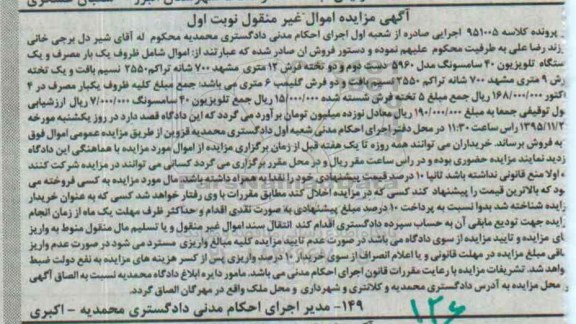 آگهی مزایده اموال غیر منقول نوبت اول
پرونده کلاسه 951005 اجرایی صادره از شعبه اول اجرای احکام مدنی دادگستری محمدیه محکوم له آقای شیر دل برجی خانی
زند رضا علی به طرفیت محکوم علیهم نموده و دستور فروش آن صادر شده که عبارتند از: اموال شامل ظروف یک بار مصرف و یک
ستگاه تلویزیون 40 سامسونگ مدل 5960 دست دوم و دو تخته فرش 12 متری مشهد 700 شانه تراکم 2550 نسیم بافت و یک تخته
رش 9 متری مشهد 700 شانه تراکم 2550 نسیم بافت و دو فرش گلیمپ 6 متری می باشد: جمع مبلغ کلیه ظروف یکبار مصرف در 4
کتور 168/000/000 ریال جمع مبلغ 5 تخته فرش شسته شده 15/000/000 ریال جمع تلویزیون 40 سامسونگ 7/000/000 ریال ارزشیابی
ول توقیفی جمعا به مبلغ 190/000/000 ریال معادل نوزده میلیون تومان برآورد می گردد که این دادگاه قصد دارد در روز یکشنبه مورخه
1395/11/3 راس ساعت 11:30 در محل دفتر اجرای احکام مدنی شعبه اول دادگستری محمدیه قزوین از طریق مزایده عمومی اموال فوق
به فروش برساند. خریداران می توانند همه روزه تا یک هفته قبل از زمان برگزاری مزایده از اموال مورد مزایده با هماهنگی این دادگاه
زدید نمایند مزایده حضوری بوده و در راس ساعت مقر ریال و در محل مقرر برگزاری می گردد کسانی می توانند در مزایده شرکت کنند
ه اولا منع قانونی نداشته باشد ثانیا 10 درصد قیمت پیشنهادی خود را نقدا به همراه داشته باشد. مال مورد مزایده به کسی فروخته می
ود که بالاترین قیمت را پیشنهاد کند کسی که در مزایده اخلال کند مطابق مقررات با وی رفتار خواهد شد کسی که به عنوان خریدار
زایده شناخته شد بدوا نسبت به پرداخت 10 درصد مبلغ پیشنهادی به صورت نقدی اقدام و حداکثر ظرف مهلت یک ماه از زمان انجام
زایده جهت تودیع مابقی آن به حساب سپرده دادگستری اقدام کند انتقال سند اموال غیر منقول و یا تسلیم مال منقول منوط به واریز
ای مزایده و تایید مزایده از سوی دادگاه می باشد در صورت عدم تایید مزایده کلیه مبالغ واریزی مسترد می شود در صورت عدم واریز
باقی مبلغ مزایده در مهلت قانونی و یا اعلام انصراف از سوی خریدار 10 درصد واریزی پس از کسر هزینه های مزایده به نفع دولت ضبط
واهد شد. تشریفات مزایده با رعایت مقررات قانون اجرای احکام مدنی می باشد. مامور دایره ابلاغ دادگاه محمدیه نسبت به الصاق آگهی
ر محل مزایده به آدرس دادگستری محمدیه و کلانتری و شهرداری و محل ملک واقع در مهرگان الصاق گردد.
149- مدیر اجرای احکام مدنی دادگستری محمدیه - اکبری
126